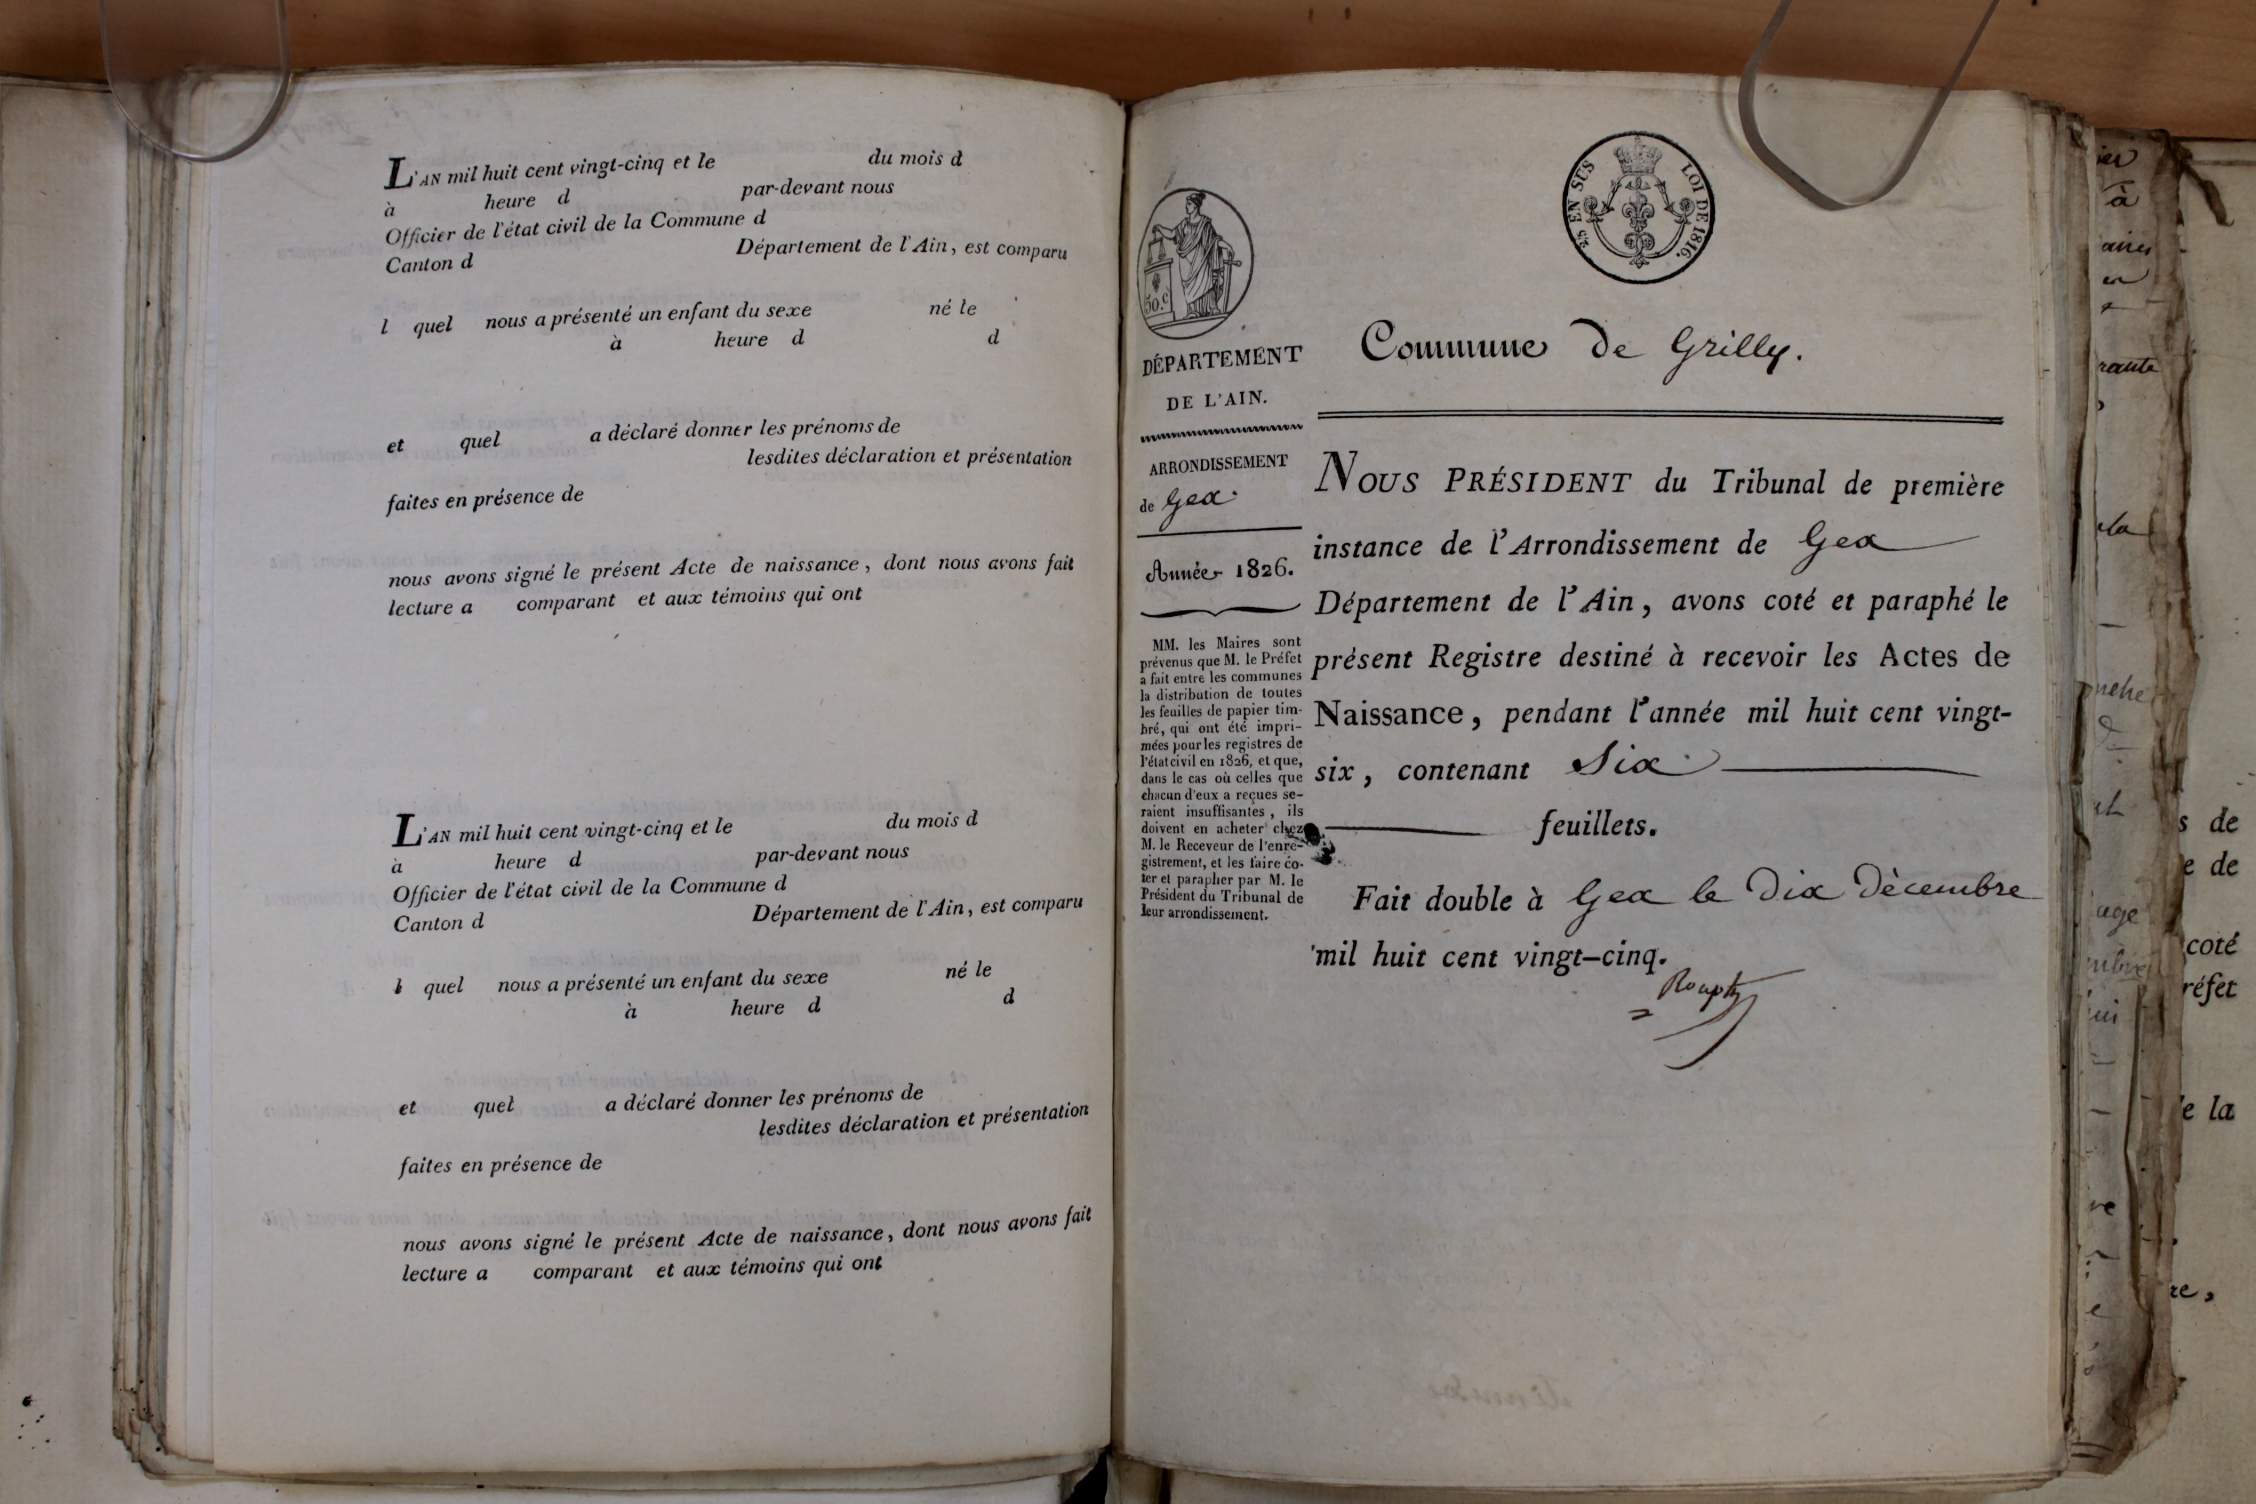 L'AN mil huit cent vingt-cinq et le du mois d
à heure d par-devant nous
Officier de l'état civil de la Commune d
Canton d Département de l'Ain, est comparu
l quel nous a présenté un enfant du sexe né le
à heure d d
et quel a déclaré donner les prénoms de
lesdites déclaration et présentation
faites en présence de
nous avons signé le présent Acte de naissance, dont nous avons fait
lecture a comparant et aux témoins qui ont
L'AN mil huit cent vingt-cinq et le du mois d
à heure d par-devant nous
Officier de l'état civil de la Commune d
Canton d Département de l'Ain, est comparu
l quel nous a présenté un enfant du sexe né le
à heure d d
et quel a déclaré donner les prénoms de
lesdites déclaration et présentation
faites en présence de
nous avons signé le présent Acte de naissance, dont nous avons fait
lecture a comparant et aux témoins qui ont
25 EN SUS LOI DE 1816.
50.c
DÉPARTEMENT
DE L'AIN.
ARRONDISSEMENT
de Gex
Année 1826.
MM. les Maires sont
prévenus que M. le Préfet
a fait entre les communes
la distribution de toutes
les feuilles de papier tim-
bré, qui ont été impri-
mées pour les registres de
l'état civil en 1826, et que,
dans le cas où celles que
chacun d'eux a reçues se-
raient insuffisantes, ils
doivent en acheter chez
M. le Receveur de l'enre-
gistrement, et les faire co-
ter et parapher par M. le
Président du Tribunal de
leur arrondissement.
Commune de Grilly.
NOUS PRÉSIDENT du Tribunal de première
instance de l'Arrondissement de Gex
Département de l'Ain, avons coté et paraphé le
présent Registre destiné à recevoir les Actes de
Naissance, pendant l'année mil huit cent vingt-
six, contenant Six
feuillets.
Fait double à Gex le Dix Décembre
mil huit cent vingt-cinq.
à
rante
la
age
s de
e de
coté
réfet
e la